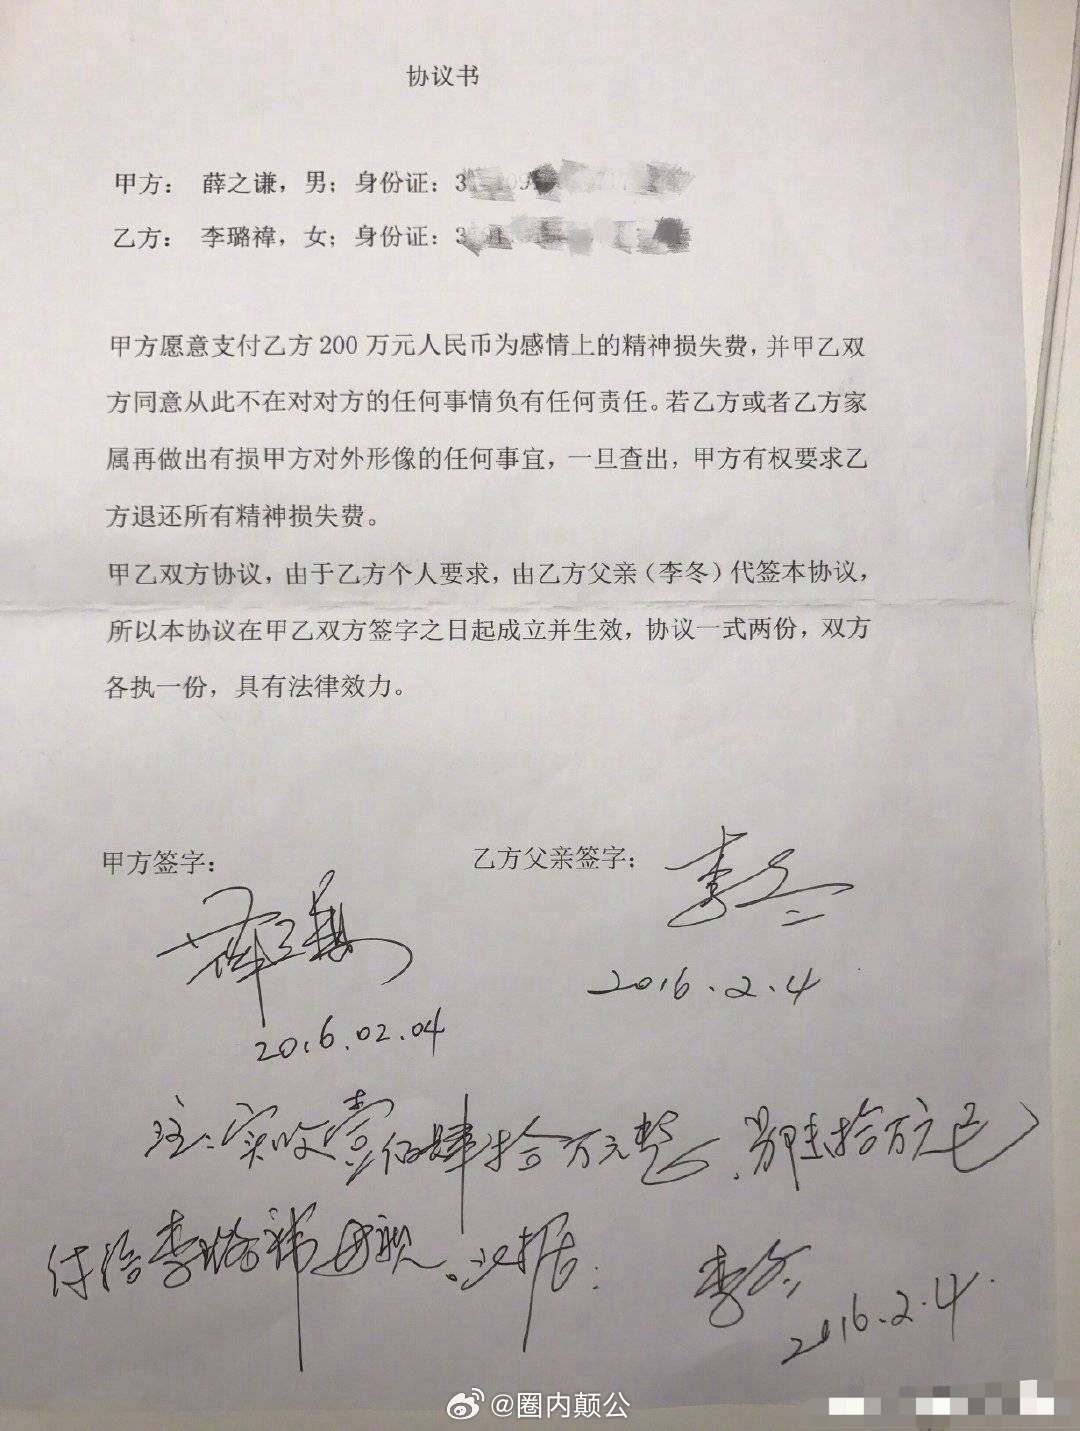 协议书
甲方： 薛之谦，男；身份证：3
乙方： 李璐禕，女；身份证：3
甲方愿意支付乙方200万元人民币为感情上的精神损失费，并甲乙双
方同意从此不在对对方的任何事情负有任何责任。若乙方或者乙方家
属再做出有损甲方对外形像的任何事宜，一旦查出，甲方有权要求乙
方退还所有精神损失费。
甲乙双方协议，由于乙方个人要求，由乙方父亲（李冬）代签本协议，
所以本协议在甲乙双方签字之日起成立并生效，协议一式两份，双方
各执一份，具有法律效力。
甲方签字： 乙方父亲签字： 李冬
薛之谦
2016.2.4
2016.02.04
注：实收壹佰肆拾万元整，另外拾万元已
付给李璐禕母亲。以据：
李冬
2016.2.4.
@圈内颠公